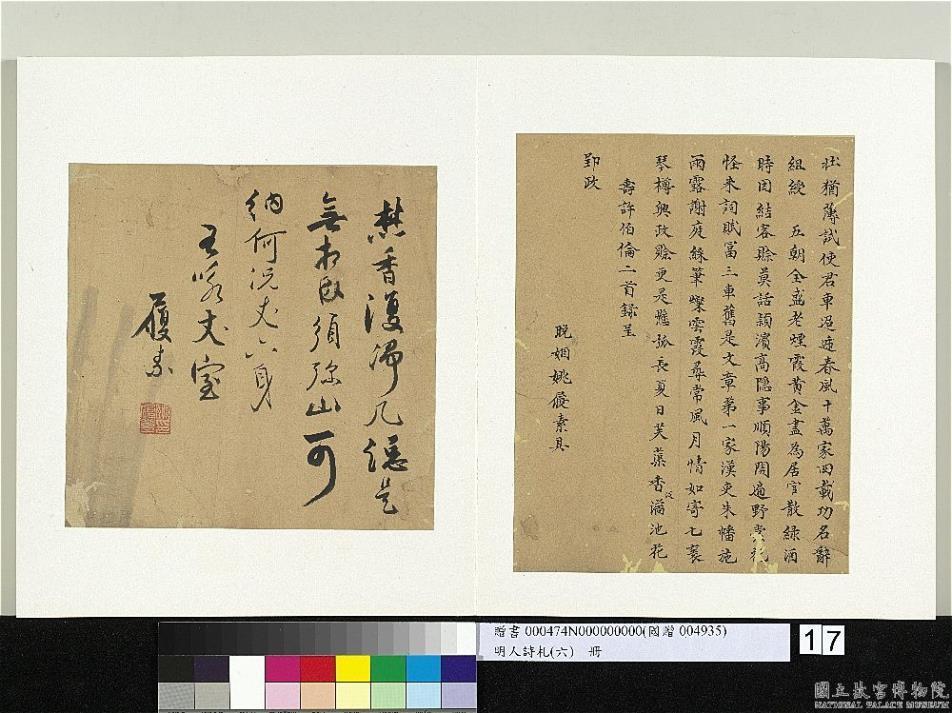 壯猶薄試使君車過處春風十萬家四載功名辭
組綬　五朝全盛老煙霞黃金盡為居官散綠酒
時因結客賒莫話潁濱高隱事順陽閒遍野棠花
怪來詞賦富三車舊是文章第一家漢吏朱幡施
雨露謝庭綵筆燦雲霞尋常風月情如寄七袠
琴樽興政賒更是懸弧長夏日芙蕖香滿池花
壽許伯倫二首錄呈
郢政
晚姻姚履素具
焚香瀀淨几隱是
無須彌山可
納何況丈六身
丈室
履素
贈書 000474N000000000(國贈 004935)
明人詩札(六)　冊
17
國立故宮博物院
NATIONAL PALACE MUSEUM